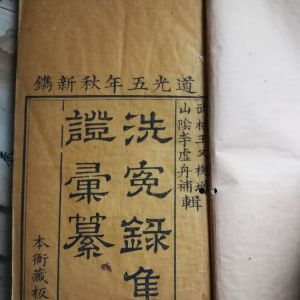 道光五年秋新鐫
武林王又槐增
山陰李虛舟補輯
洗冤錄集
證彙纂
本衙藏板